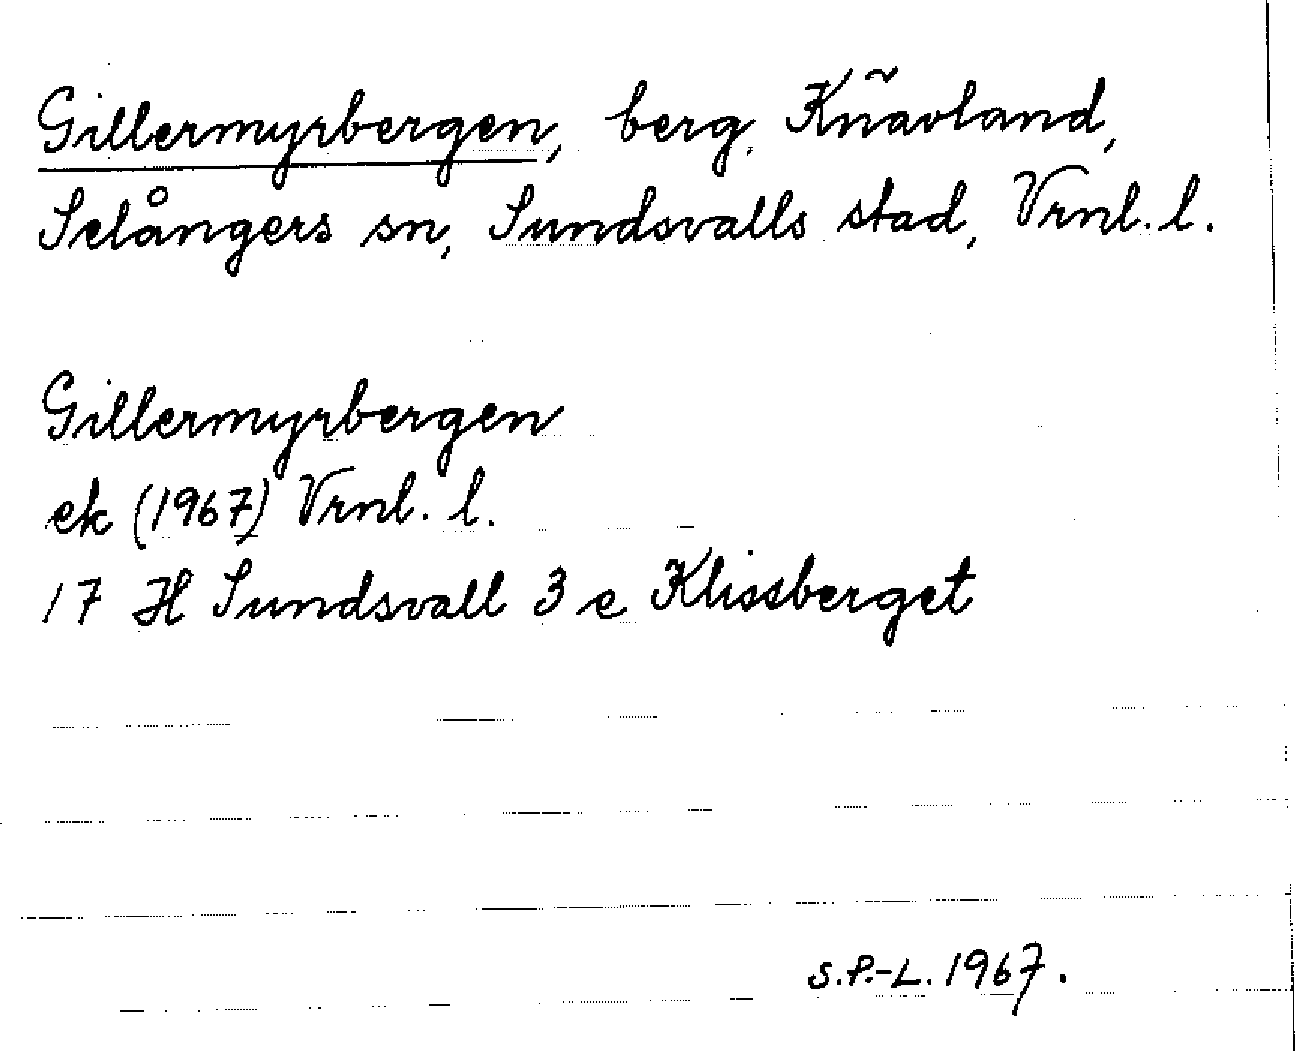 Gillermyrbergen, berg, Knavland,
Selångers sn, Sundsvalls stad, Vrnl. l.
Gillermyrbergen
ek (1967) Vrnl. l.
17 H Sundsvall 3 e Klissberget
S.P.-L. 1967.